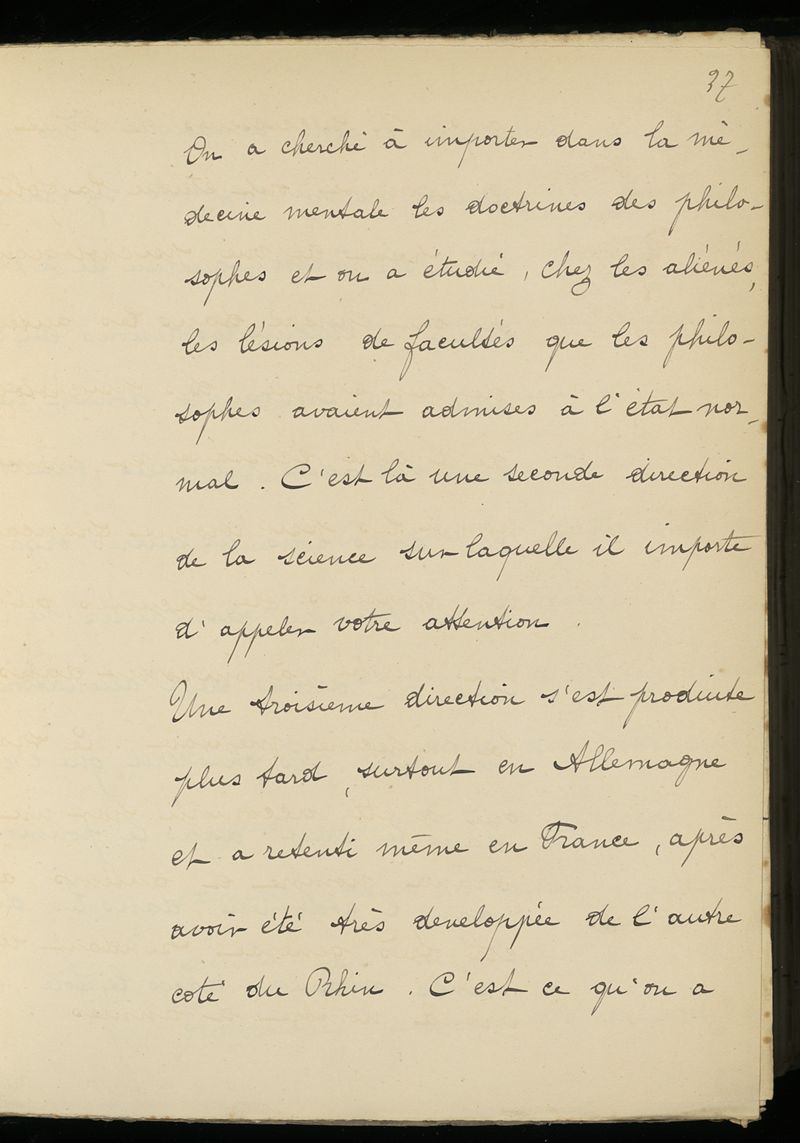 37
On a cherché à importer dans la mé-
decine mentale les doctrines des philo-
sophes et on a étudié, chez les aliénés,
les lésions de facultés que les philo-
sophes avaient admises à l'état nor-
mal. C'est là une seconde direction
de la science sur laquelle il importe
d'appeler votre attention.
Une troisième direction s'est produite
plus tard, surtout en Allemagne
et a retenti même en France, après
avoir été très developpée de l'autre
coté du Rhin. C'est ce qu'on a